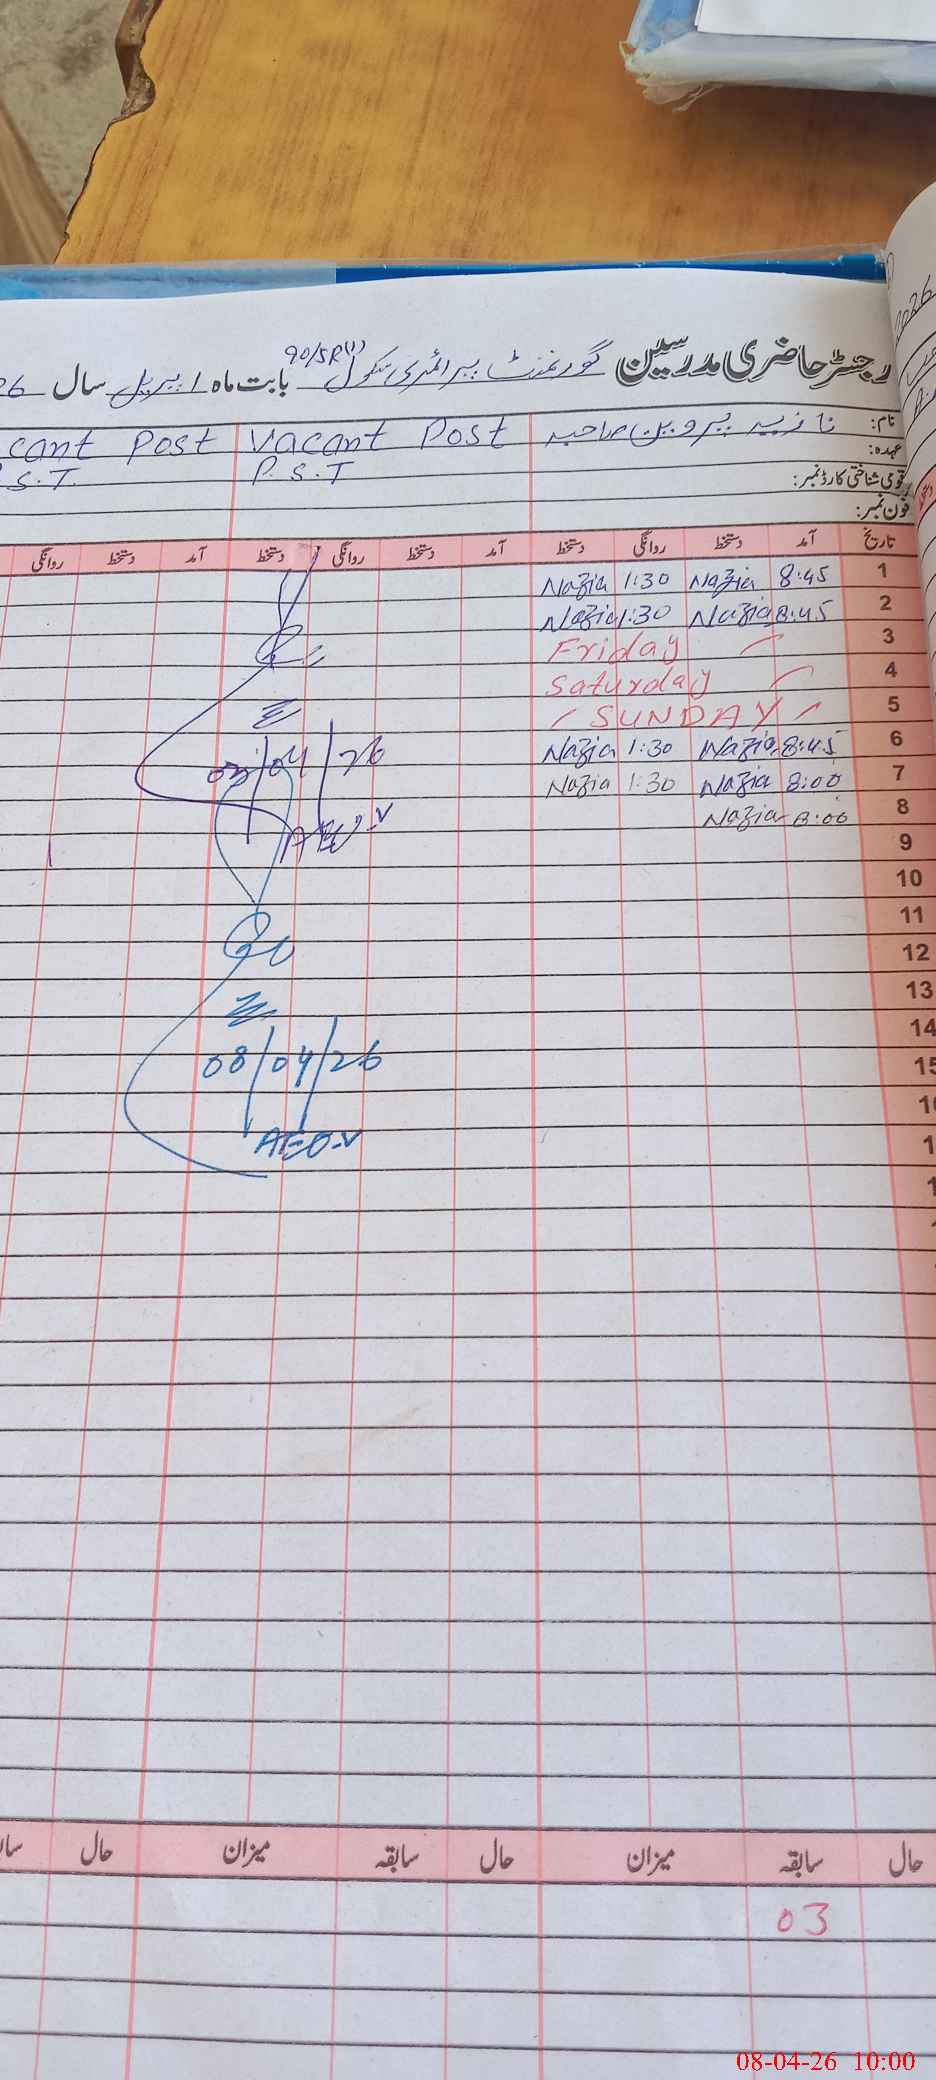 رجسٹر حاضری مدرسین گورنمنٹ پرائمری سکول 90/5R(1) بابت ماہ اپریل سال 26
نام: نازیہ پروین صاحبہ Vacant Post cant Post
عہدہ: P.S.T .S.T.
قومی شناختی کارڈ نمبر:
فون نمبر:
تاریخ آمد دستخط روانگی دستخط آمد دستخط روانگی دستخط آمد دستخط روانگی
1 8:45 Nazia 1:30 Nazia
2 8:45 Nazia 1:30 Nazia
3 Friday
4 Saturday
5 SUNDAY
6 8:45 Nazia 1:30 Nazia
7 8:00 Nazia 1:30 Nazia
8 8:00 Nazia
9
10
11
12
13
14
15
03/04/26
AEO-V
08/04/26
AEO-V
حال سابقہ میزان حال سابقہ میزان حال
03
08-04-26 10:00